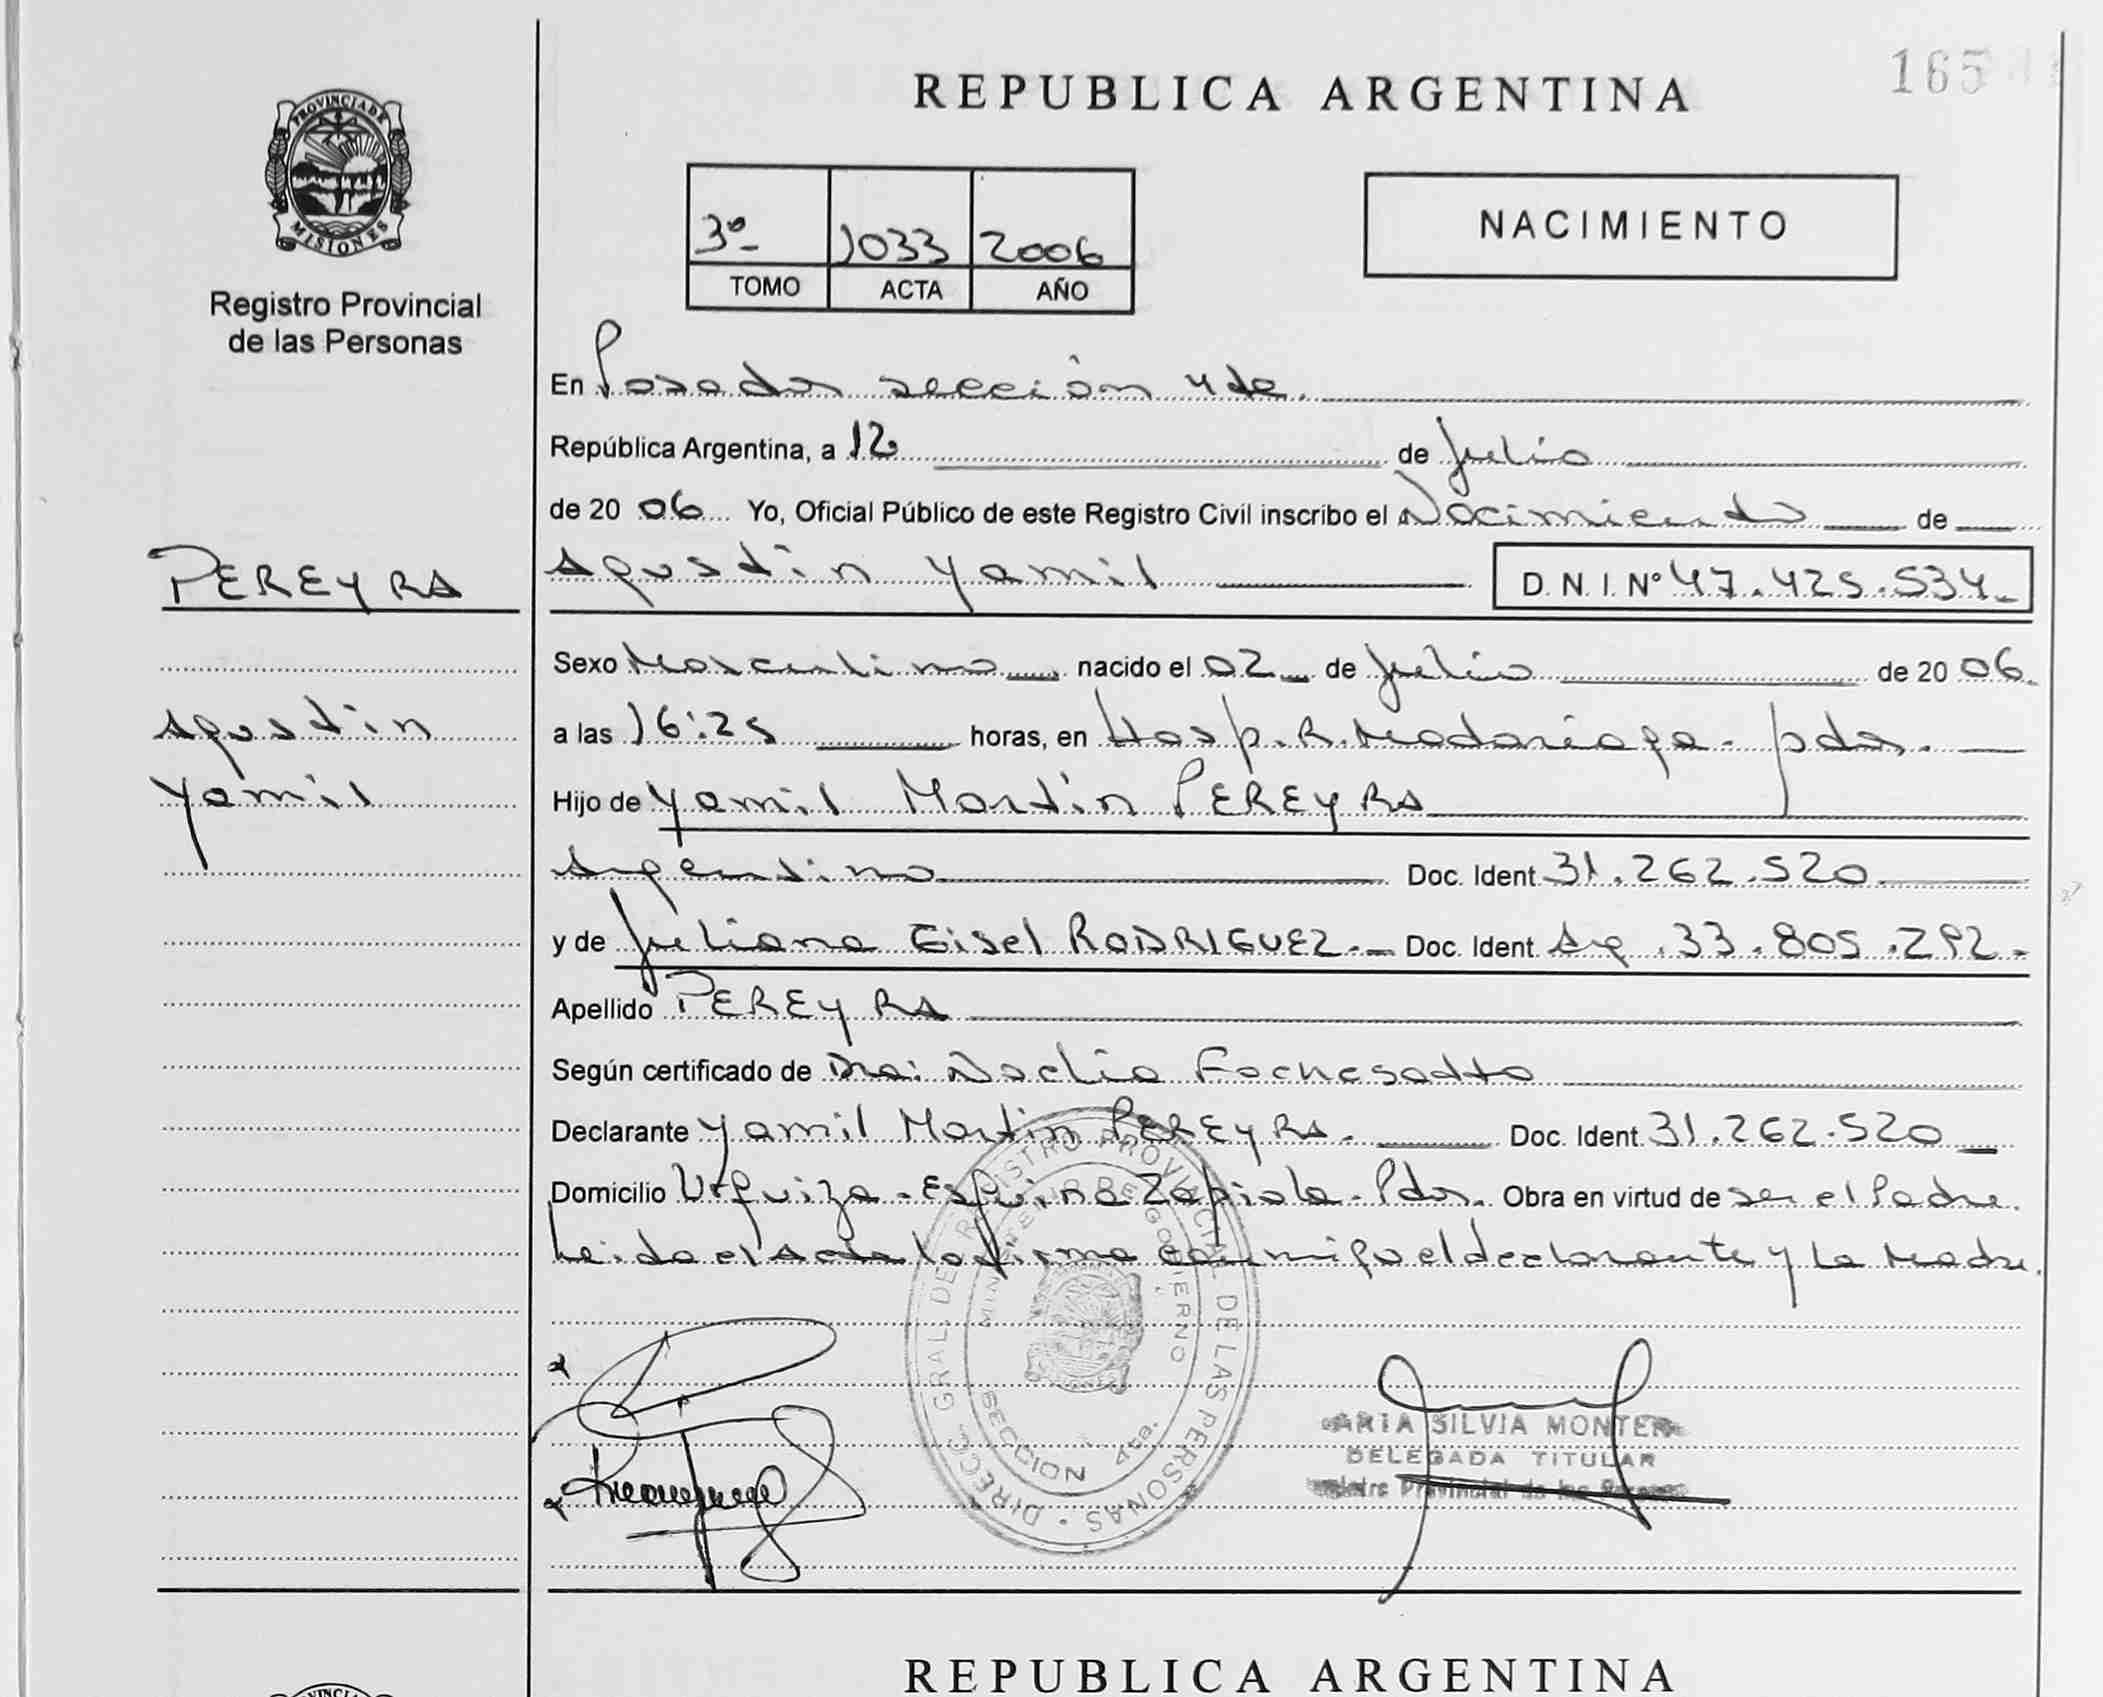 165
REPUBLICA ARGENTINA
PROVINCIA DE
MISIONES
Registro Provincial
de las Personas
3º 1033 2006
TOMO ACTA AÑO
NACIMIENTO
En Posadas sección 4ta.
República Argentina, a 12 de Julio
de 2006 Yo, Oficial Público de este Registro Civil inscribo el Nacimiento de
PEREYRA
Agustín Yamil D.N.I. Nº 47.425.534
Sexo Masculino nacido el 02 de Julio de 2006.
Agustín
a las 16:25 horas, en Hosp. R. Madariaga - Pdas.
Yamil
Hijo de Yamil Martín PEREYRA
Argentino Doc. Ident. 31.262.520
y de Juliana Gisel RODRIGUEZ.- Doc. Ident. Arg. 33.805.292-
Apellido PEREYRA
Según certificado de Dra: Noelia Fochesatto
Declarante Yamil Martín PEREYRA. Doc. Ident. 31.262.520
Domicilio Urquiza - Esquina Zapiola - Pdas. Obra en virtud de ser el Padre.
Leida el Acta la firma conmigo el declarante y La Madre.
DIRECC. GRAL. DEL REGISTRO PROVINCIAL DE LAS PERSONAS
MINISTERIO DE GOBIERNO
SECCION 4ta.
ARIA SILVIA MONTE
DELEGADA TITULAR
Provincial de las Personas
REPUBLICA ARGENTINA